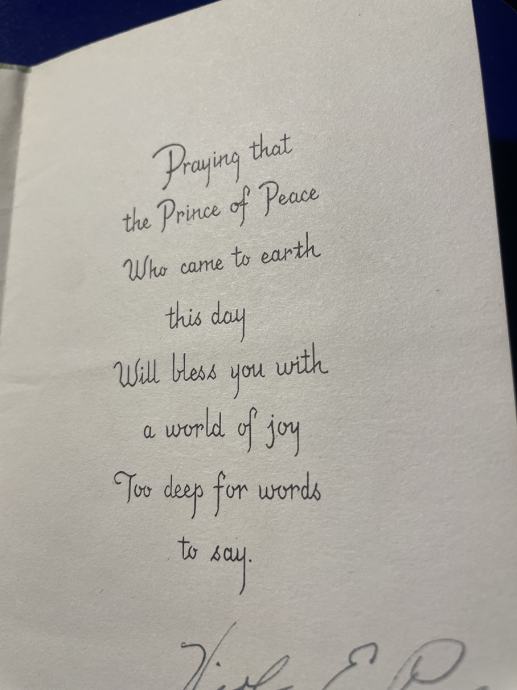 Praying that
the Prince of Peace
Who came to earth
this day
Will bless you with
a world of joy
Too deep for words
to say.